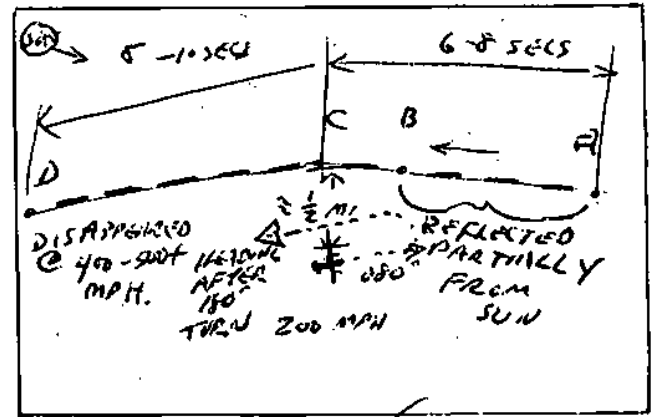 SUN
8 - 10 SECS
6-8 SECS
C
B
A
D
½ MI
DISAPPEARED
@ 400-500+
MPH.
HEADING
AFTER
180°
TURN 200 MPH
080°
REFLECTED
PARTIALLY
FROM
SUN